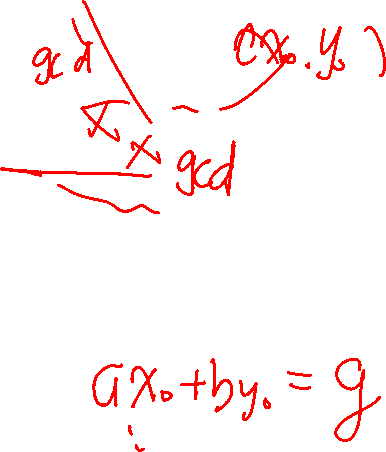 gcd
(x₀, y₀)
gcd
ax₀+by₀ = g